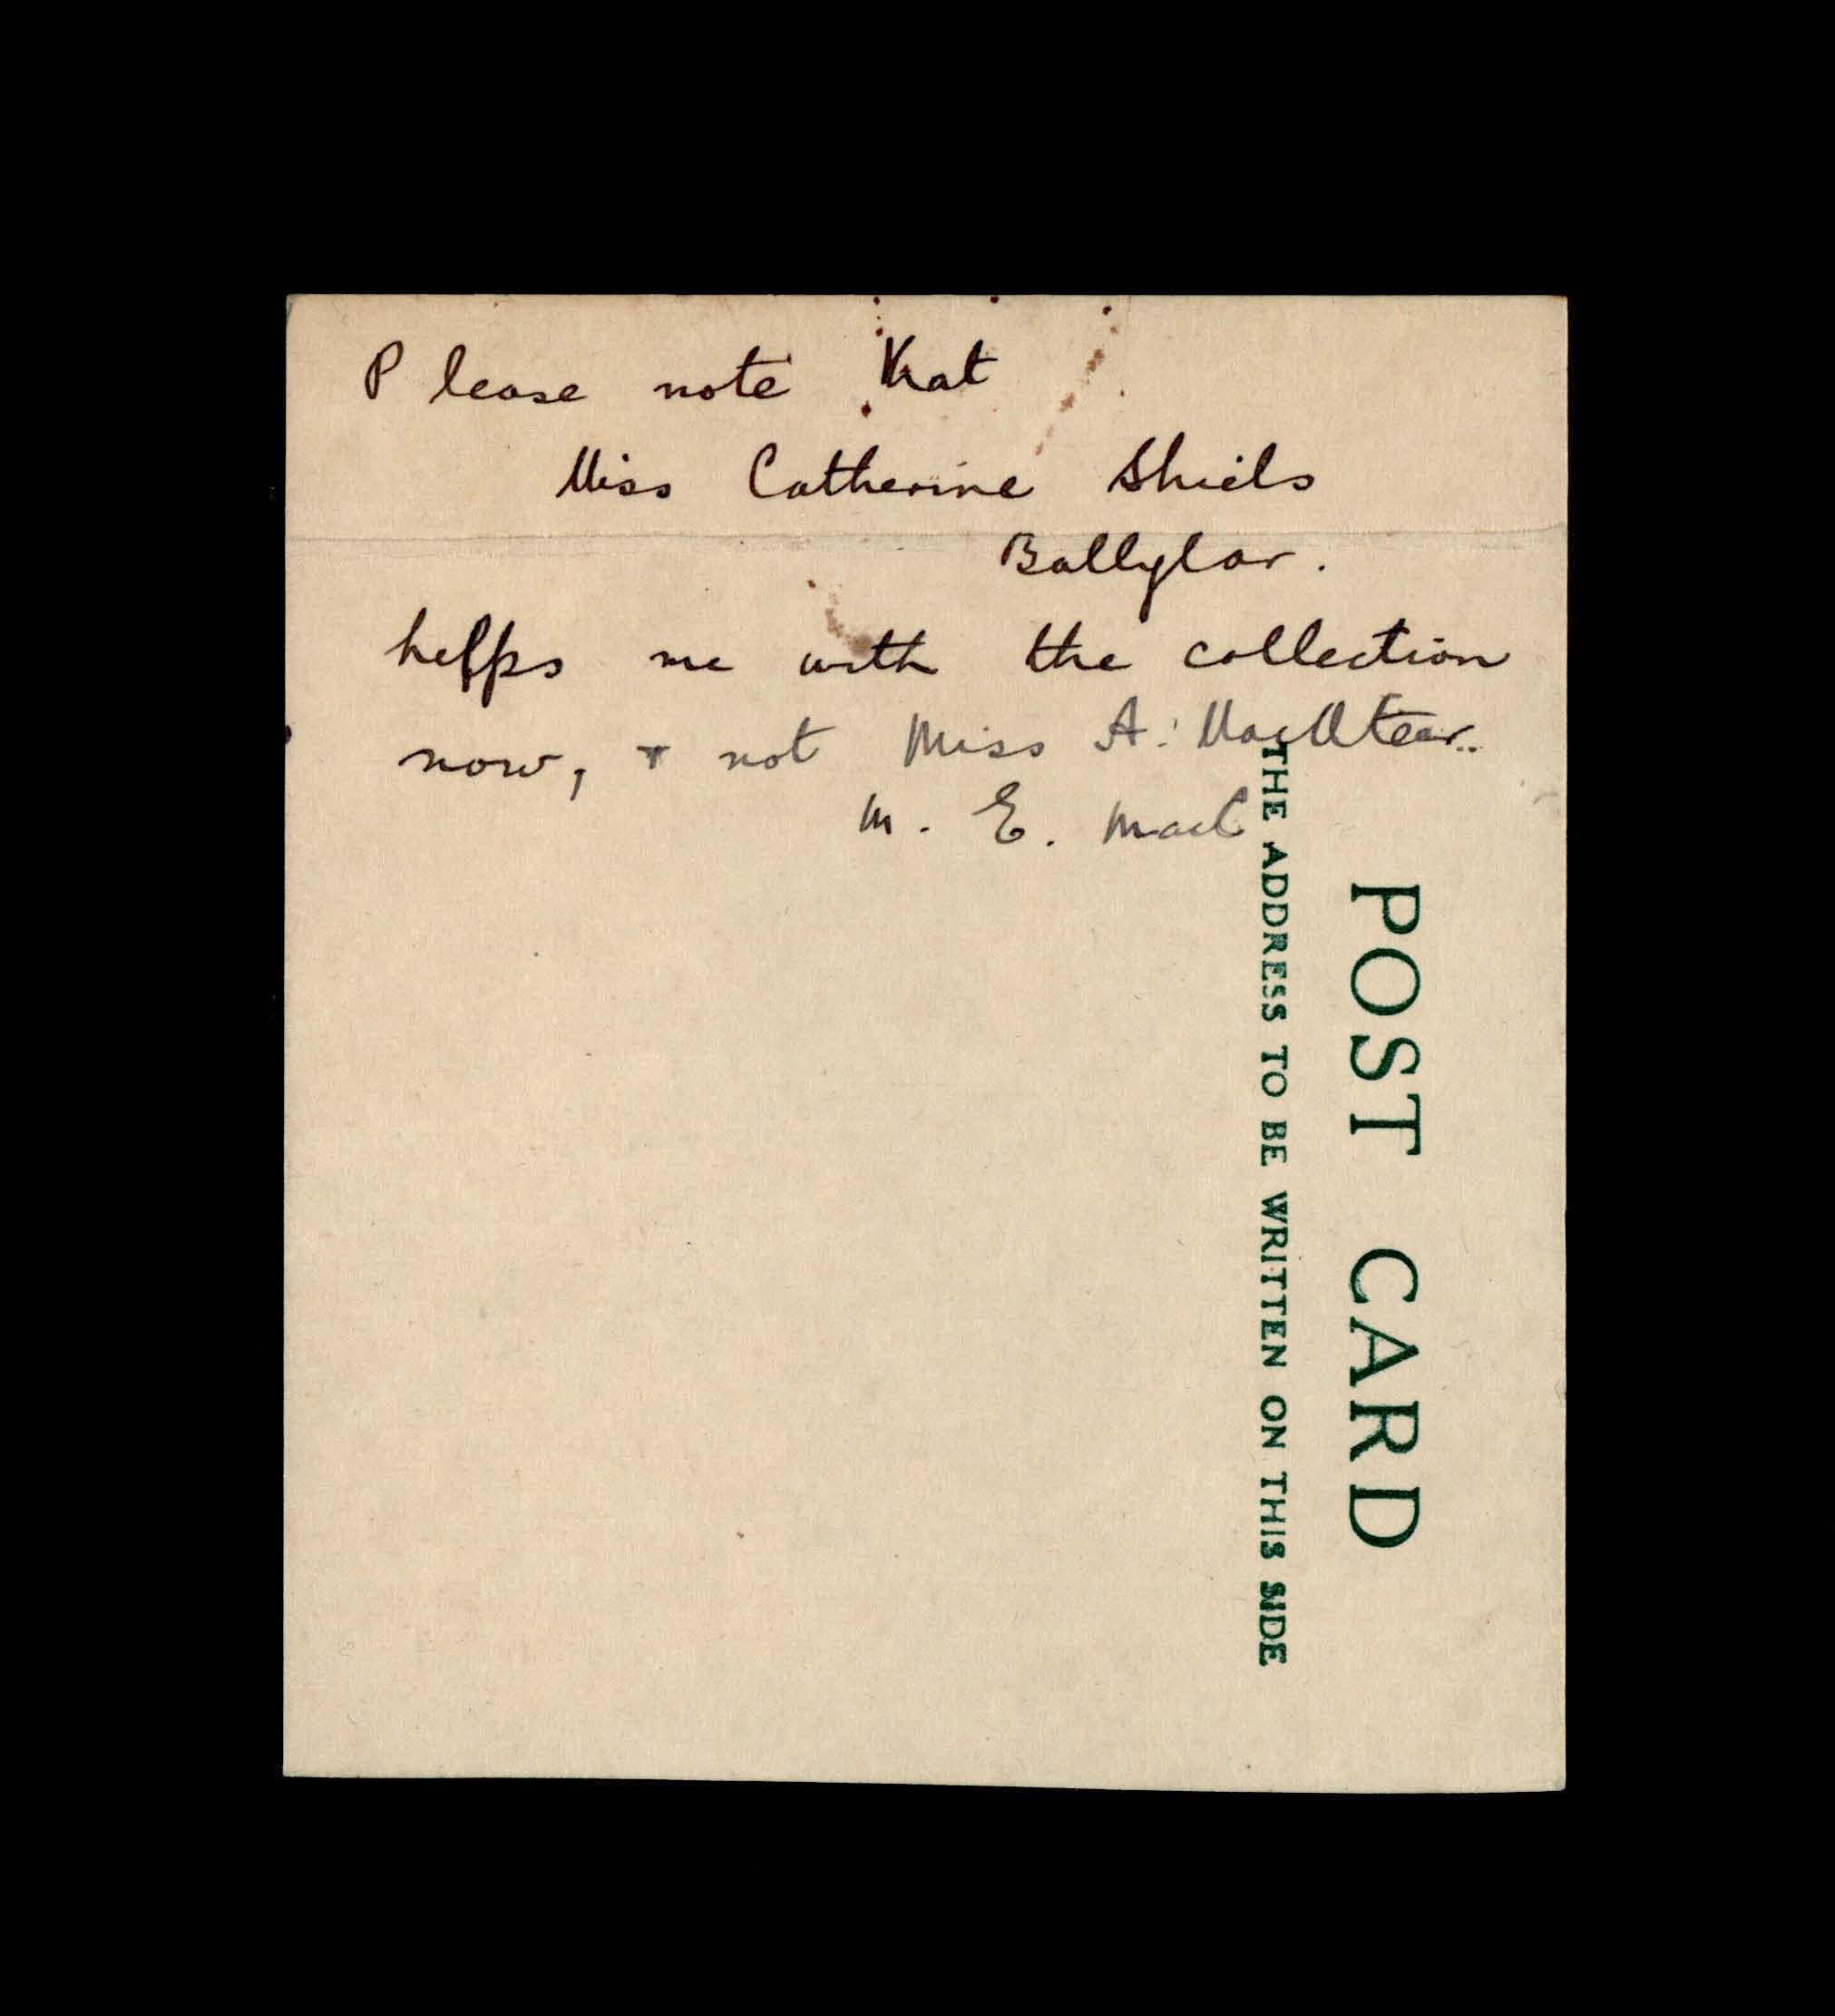 Please note that
Miss Catherine Shiels
Ballylar.
helps me with the collection
now, + not Miss A.
M. E. MacC
POST CARD
THE ADDRESS TO BE WRITTEN ON THIS SIDE